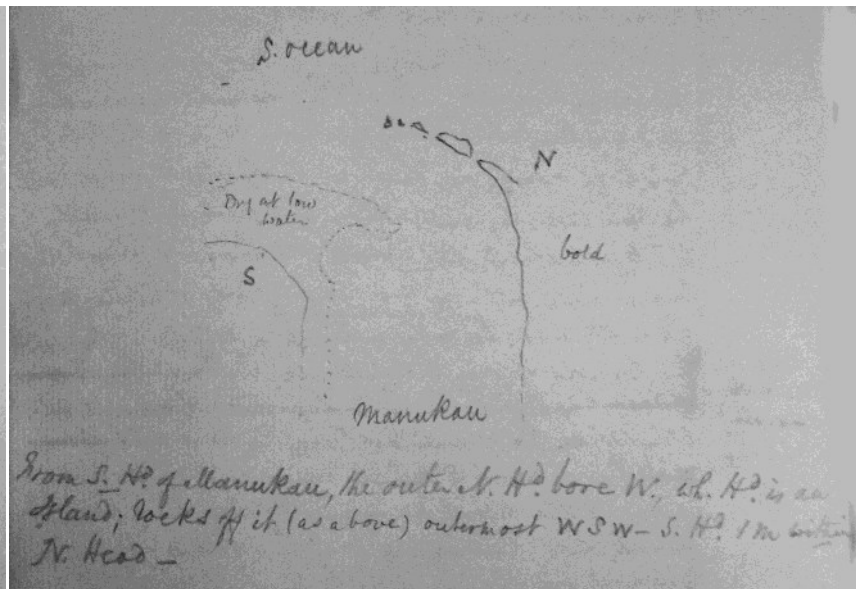 S. ocean
N
Dry at low
water
bold
S
Manukau
From S. Hd. of Manukau, the outer N. Hd. bore W., wh. Hd. is an
Island; rocks off it (as above) outermost WSW - S. Hd. 1 m within
N. Head -